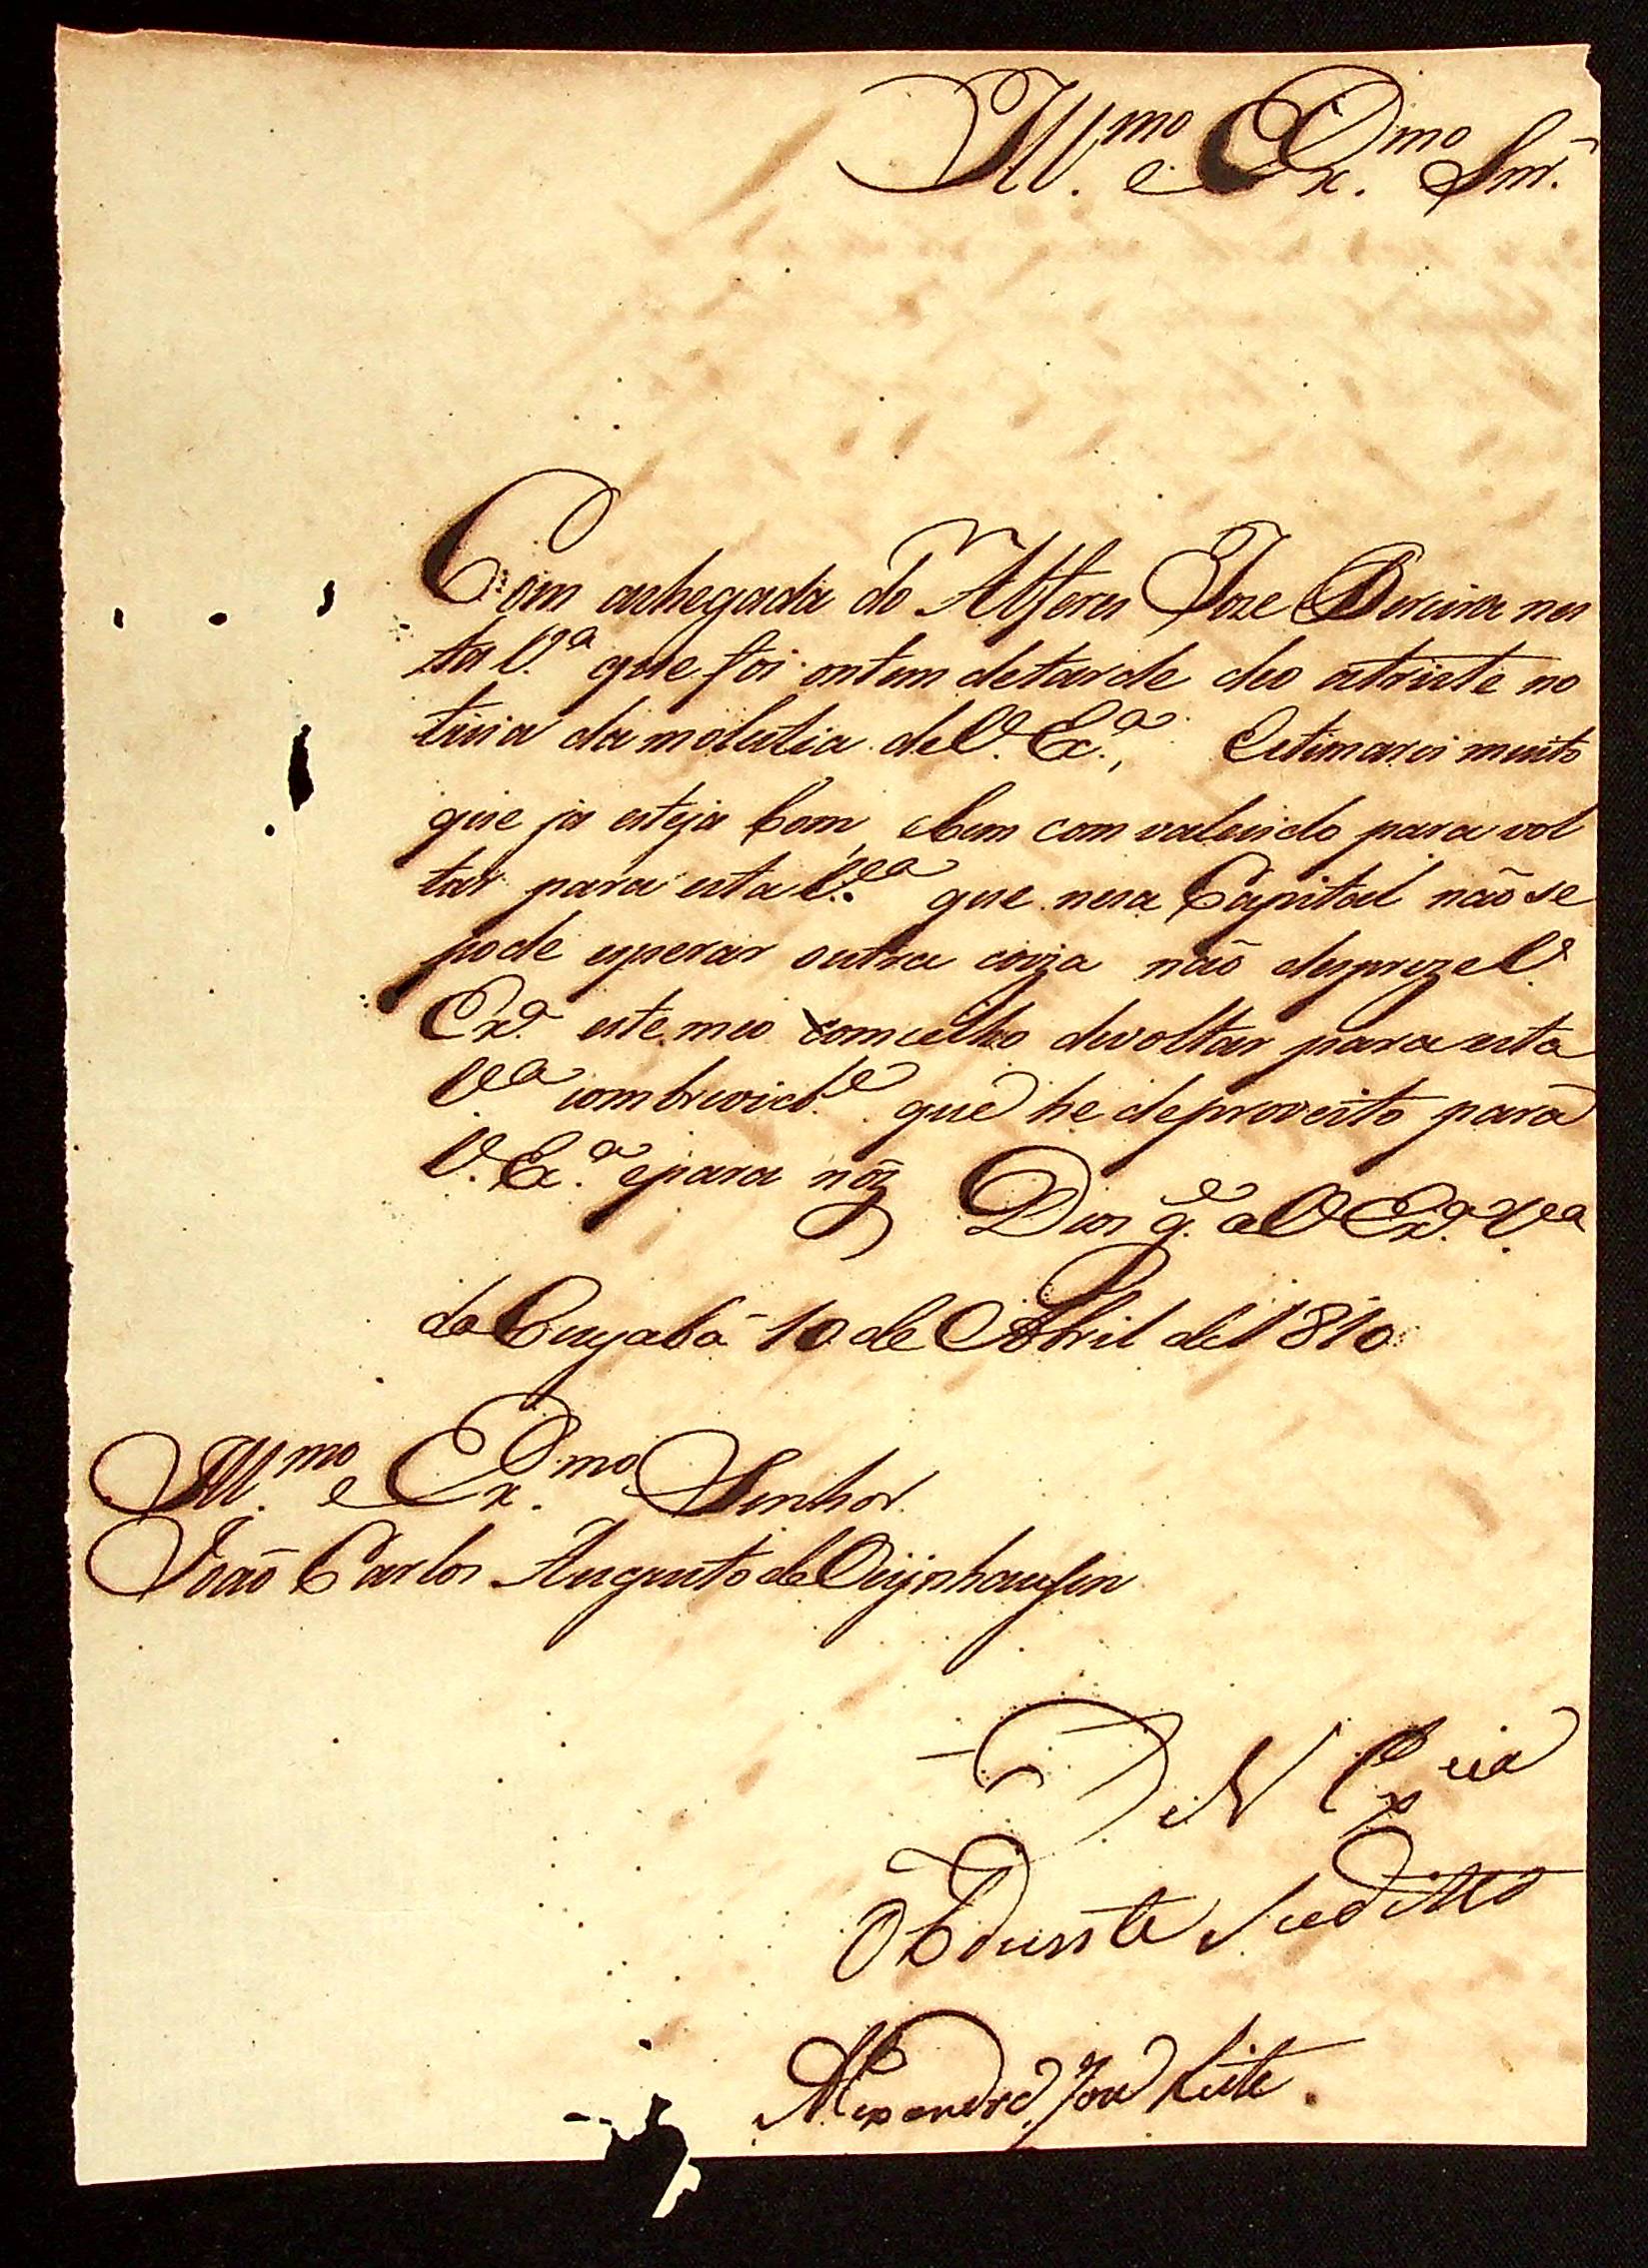 Ill.mo e Ex.mo Snr.
Com achegada do Alferes Joze Pereira nes
ta V.a que foi ontem detarde deo atriste no
ticia damolestia deV. Ex.a, Estimarei muito
que ja esteja bom, ebem comvalecido para vol
tar para esta V.ea que nesa Capital não se
pode esperar outra coiza não despreze V.
Ex.a este meo comcelho devoltar para esta
V.ea combrevid.e que he deproveito para
V. Ex.a epara nóz Deos g.e a V Ex.a V.ea
do Cuyabá 10 de Abril de 1810
Ill.mo e Ex.mo Senhor
João Carlos Augusto de Oeijnhausen
De V Ex.cia
Obdiente Sudito
Alexandre Joze Leite.